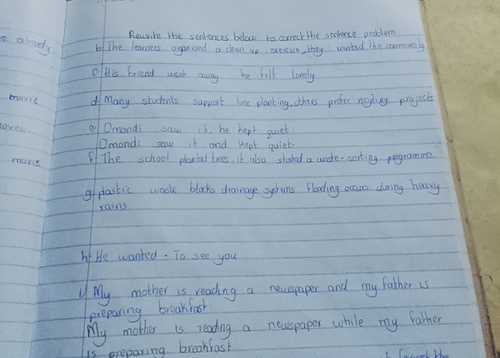 e already
movie
novels
movie
Rewrite the sentences below to correct the sentence problem
b, The learners organised a clean up exercise, they invited the community
c, His friend went away he felt lonely
d, Many students support tree planting, others prefer recycling projects
e, Omondi saw it he kept quiet.
Omondi saw it and kept quiet.
f, The school planted trees, it also started a waste-sorting programme
g, plastic waste blocks drainage systems flooding occurs during heavy
rains
h, He wanted. To see you
i, My mother is reading a newspaper and my father is
preparing breakfast
My mother is reading a newspaper while my father
is preparing breakfast